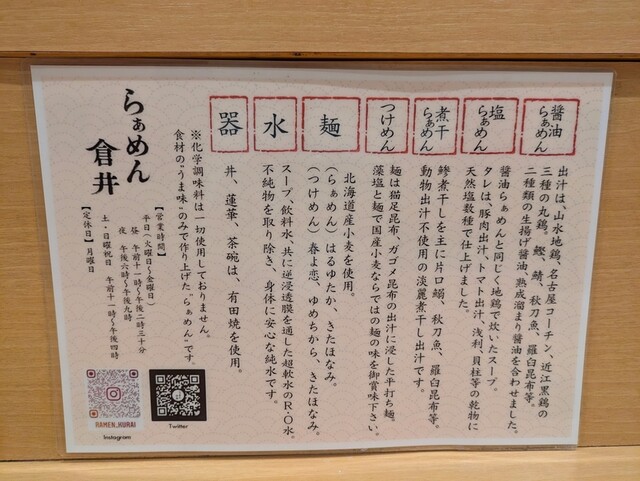 醤油
らぁめん
出汁は、山水地鶏、名古屋コーチン、近江黒鶏の
三種の丸鶏、鰹、鯖、秋刀魚、羅臼昆布等。
二種類の生揚げ醤油、熟成溜まり醤油を合わせました。
塩
らぁめん
醤油らぁめんと同じく地鶏で炊いたスープ。
タレは、豚肉出汁、トマト出汁、浅利、貝柱等の乾物に
天然塩数種で仕上げました。
煮干
らぁめん
鯵煮干しを主に片口鰯、秋刀魚、羅臼昆布等。
動物出汁不使用の淡麗煮干し出汁です。
つけめん
麺は猫足昆布・ガゴメ昆布の出汁に浸した平打ち麺。
藻塩と麺で国産小麦ならではの麺の味を御賞味下さい。
麺
北海道産小麦を使用。
(らぁめん) はるゆたか、きたほなみ。
(つけめん) 春よ恋、ゆめちから、きたほなみ。
水
スープ、飲料水、共に逆浸透膜を通した超軟水のR・O水。
不純物を取り除き、身体に安心な純水です。
器
丼、蓮華、茶碗は、有田焼を使用。
※化学調味料は一切使用しておりません。
食材の"うま味"のみで作り上げた"らぁめん"です。
らぁめん
倉井
【営業時間】
平日(火曜日〜金曜日)
昼 午前十一時〜午後二時三十分
夜 午後六時〜午後九時
土・日曜祝日 午前十一時〜午後四時
【定休日】月曜日
RAMEN_KURAI
Instagram
Twitter